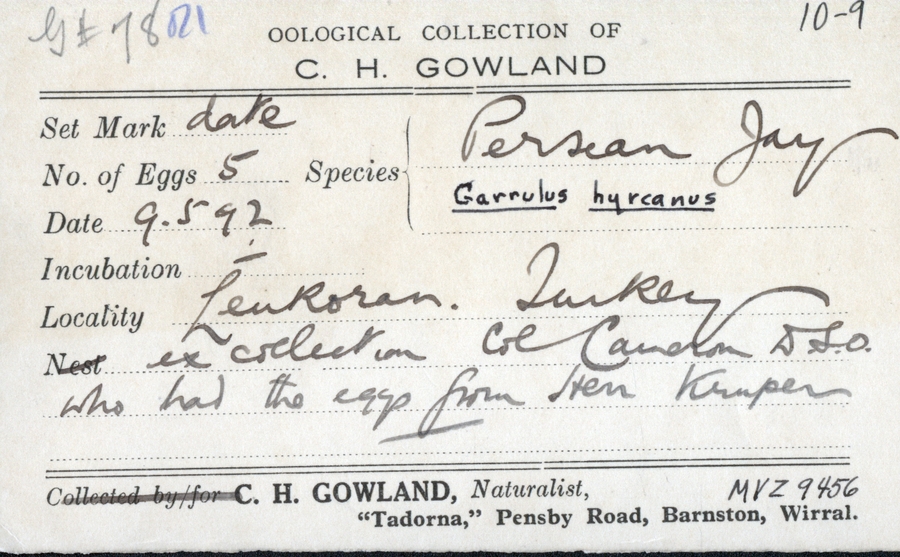 10-9
OOLOGICAL COLLECTION OF
C. H. GOWLAND
Set Mark date
No. of Eggs 5 Species Persean Jay
Garrulus hyrcanus
Date 9.5 92
Incubation -
Locality Lenkoran. Turkey
Nest ex collection Col Cameron D.S.O.
who had the eggs from Herr Kruper
Collected by/for C. H. GOWLAND, Naturalist, MVZ 9456
"Tadorna," Pensby Road, Barnston, Wirral.